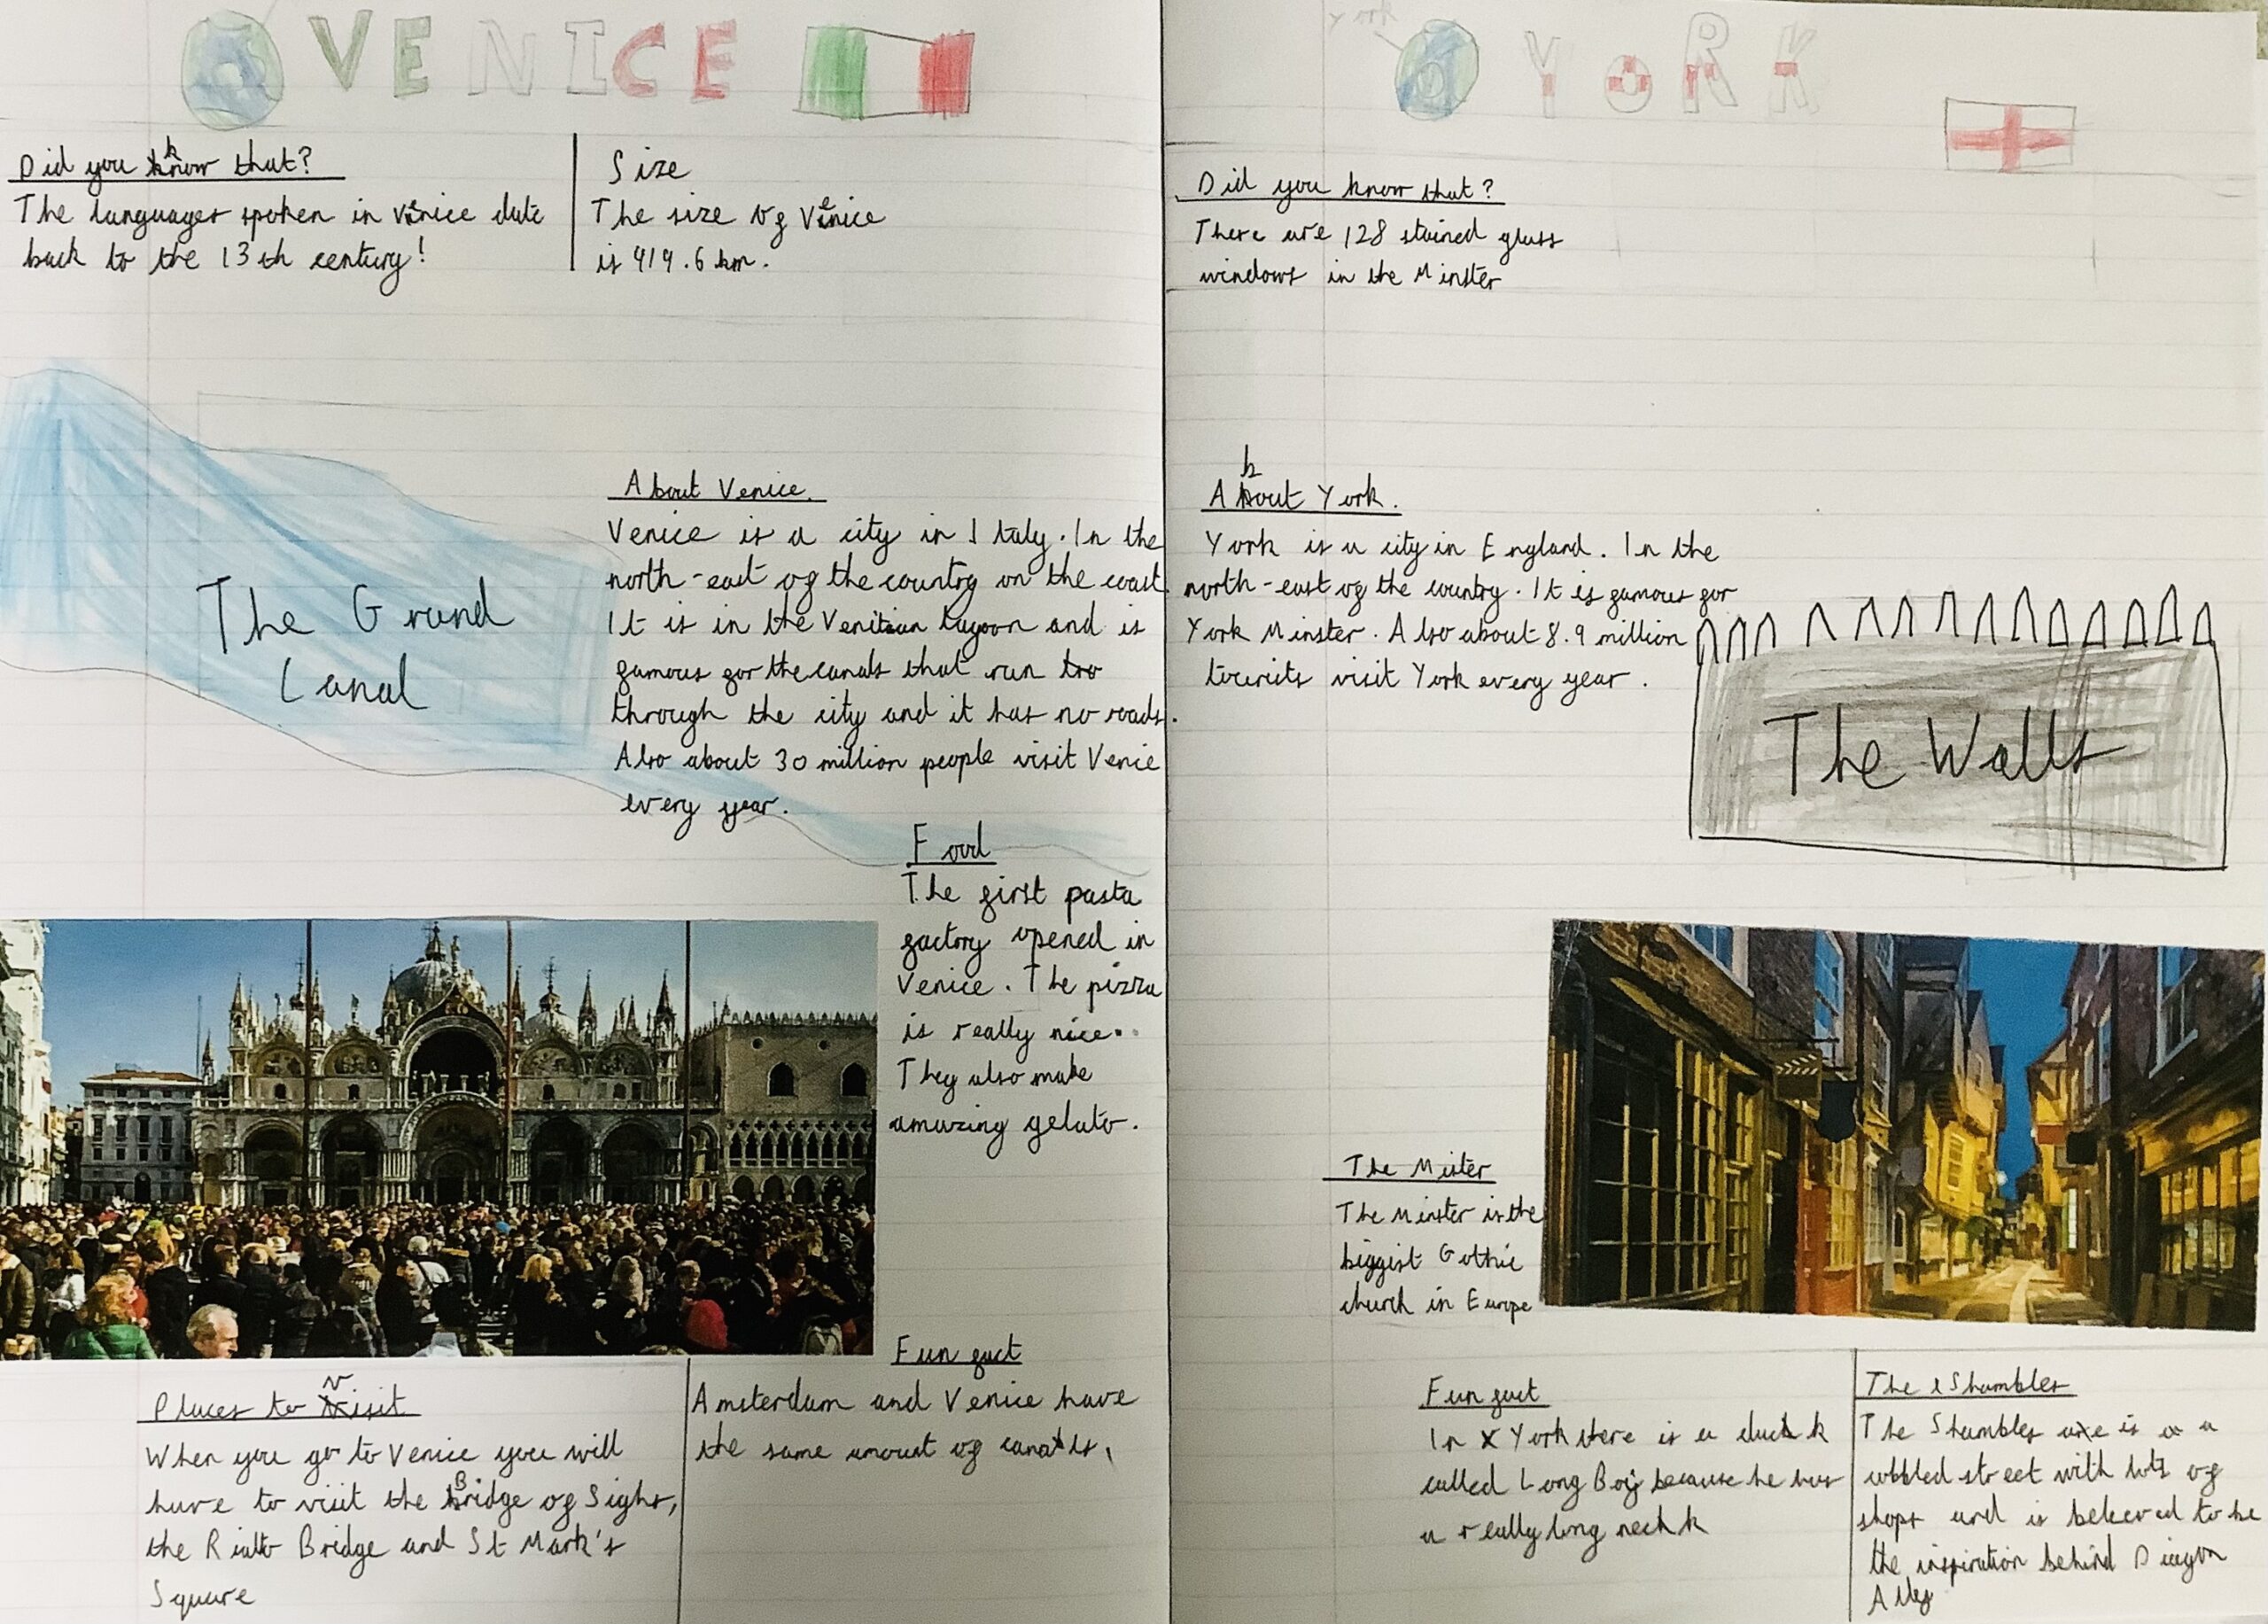 VENICE
Did you know that?
The languages spoken in Venice date
back to the 13th century!
Size
The size of Venice
is 414.6 km.
The Grand
Canal
About Venice.
Venice is a city in Italy. In the
north-east of the country on the coast.
It is in the Venitian Lagoon and is
famous for the canals that run too
through the city and it has no roads.
Also about 30 million people visit Venice
every year.
Food
The first pasta
factory opened in
Venice. The pizza
is really nice.
They also make
amazing gelato.
Places to visit
When you go to Venice you will
have to visit the Bridge of Sighs,
the Rialto Bridge and St Mark's
Square
Fun fact
Amsterdam and Venice have
the same amount of canals.
York
YORK
Did you know that?
There are 128 stained glass
windows in the Minster
About York.
York is a city in England. In the
north-east of the country. It is famous for
York Minster. Also about 8.9 million
tourists visit York every year.
The Walls
The Mister
The Minster is the
biggest Gothic
church in Europe
Fun fact
In York there is a duck
called Long Boy because he has
a really long neck
The Shambles
The Shambles is a
cobbled street with lots of
shops and is beleved to be
the inspiration behind Diagon
Alley